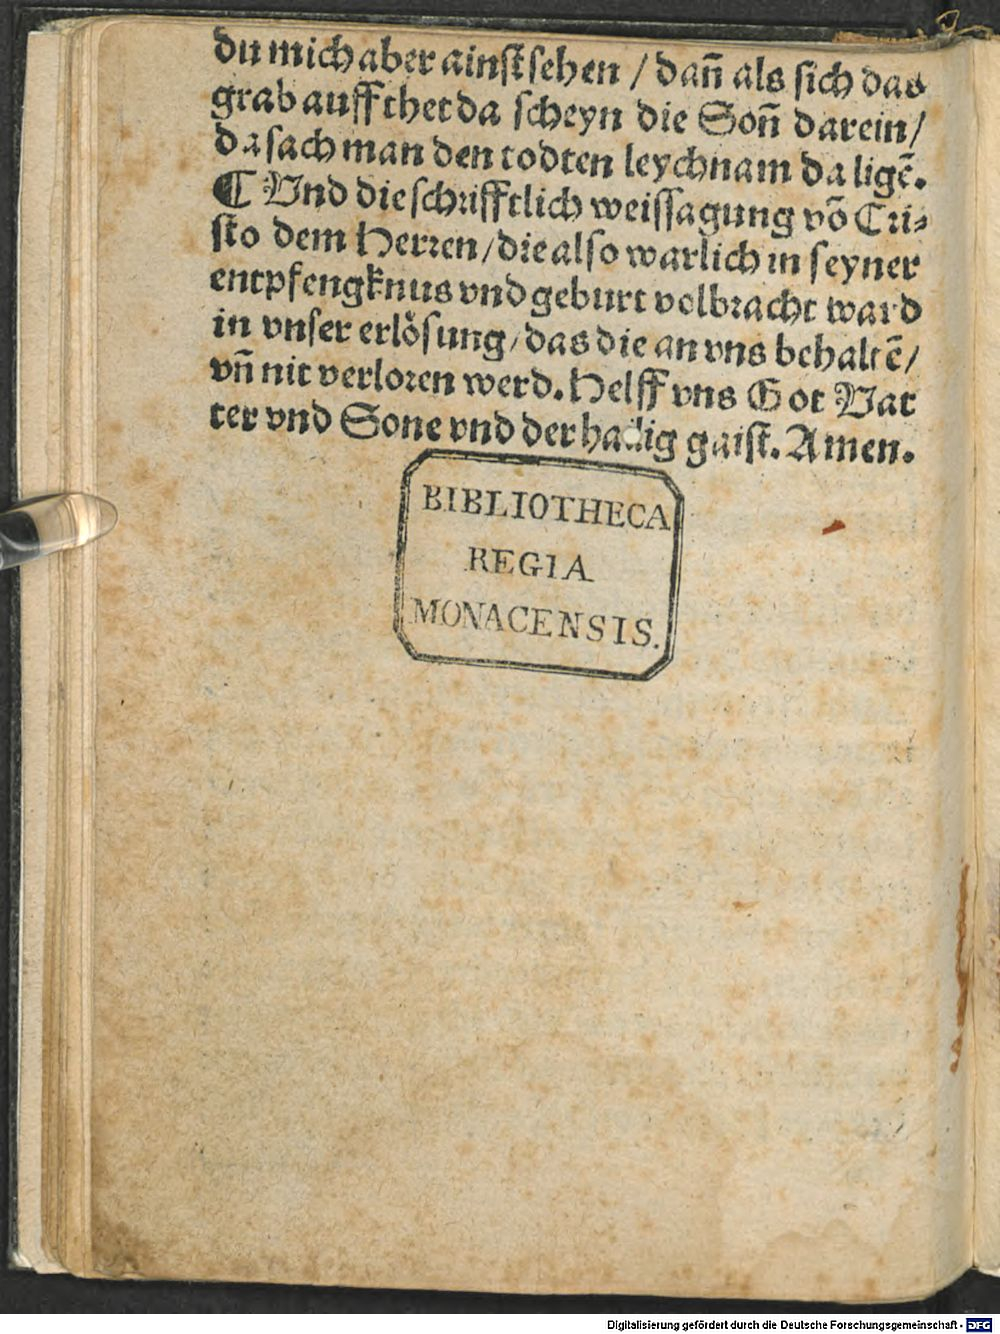 du mich aber ainst sehen / dañ als sich das
grab auff thet da scheyn die Soñ darein /
da sach man den todten leychnam da ligē.
¶ Vnd die schrifftlich weissagung vō Cri⸗
sto dem Herren / die also warlich in seyner
entpfengknus vnd geburt volbracht ward
in vnser erlösung / das die an vns behaltē /
vñ nit verloren werd. Helff vns Got Vat
ter vnd Sone vnd der hailig gaist. Amen.
BIBLIOTHECA
REGIA
MONACENSIS.
Digitalisierung gefördert durch die Deutsche Forschungsgemeinschaft - DFG